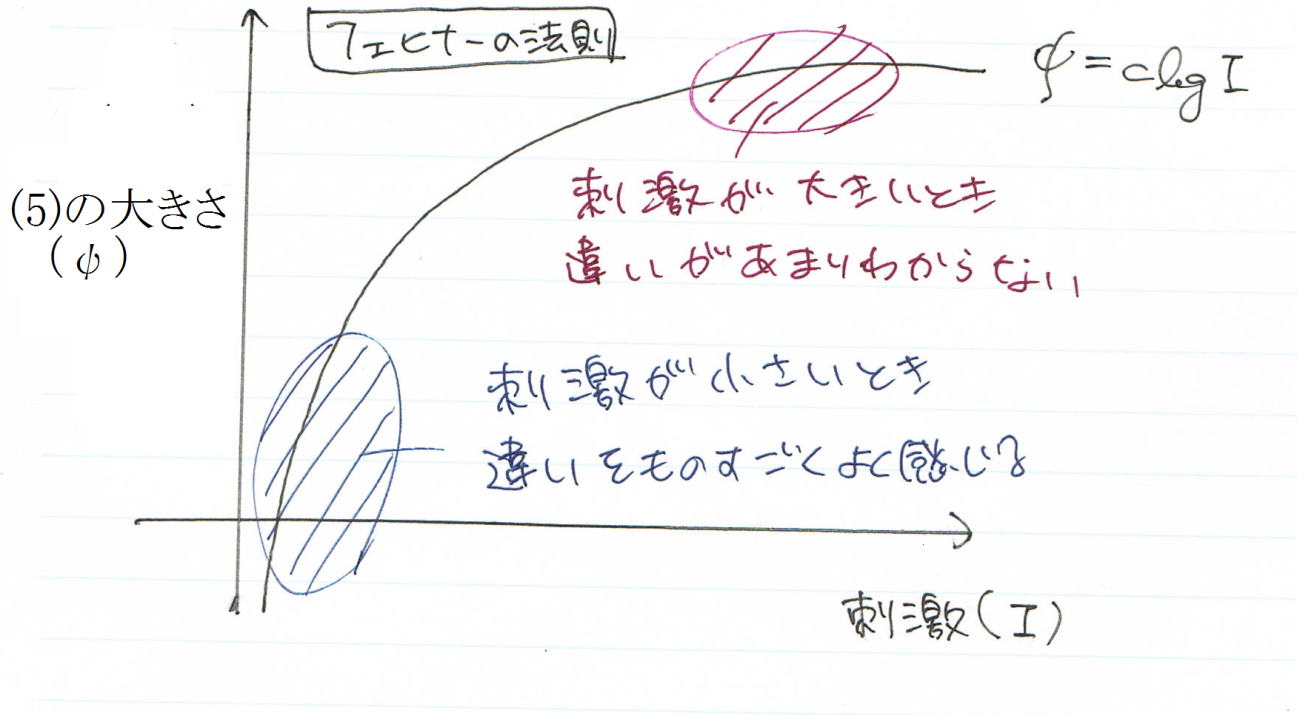 フェヒナーの法則
ψ=clogI
(5)の大きさ
(ψ)
刺激が大きいとき
違いがあまりわからない
刺激が小さいとき
違いをものすごくよく感じる
刺激(I)